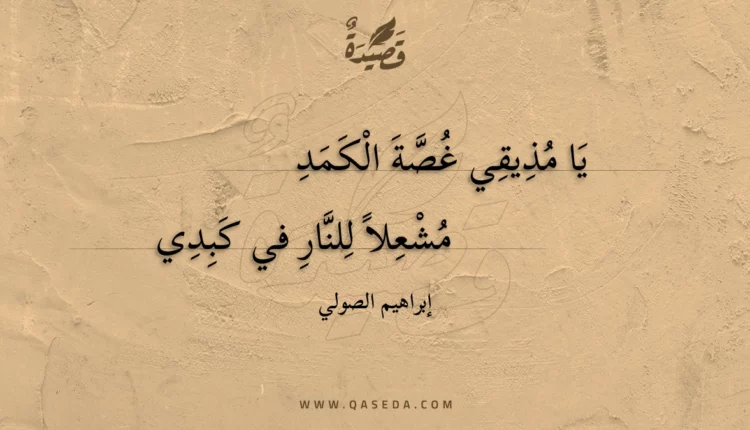 قَصِيدَةٌ
يَا مُذِيقِي غُصَّةَ الْكَمَدِ
مُشْعِلاً لِلنَّارِ في كَبِدِي
إبراهيم الصولي
WWW.QASEDA.COM